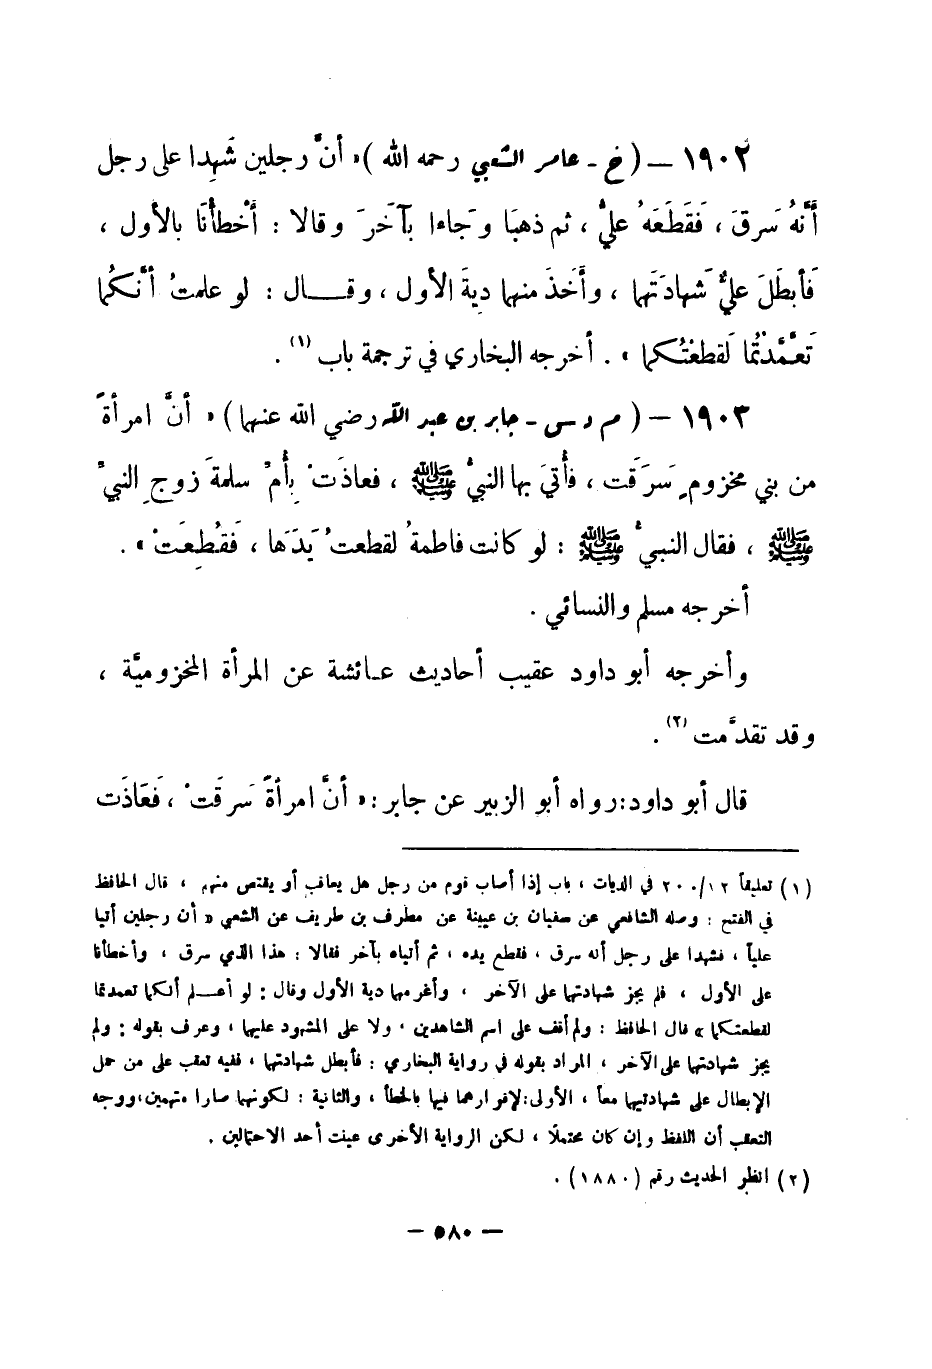 ١٩٠٢ – (خ - عامر الشعبي رحمه الله) « أنَّ رجلين شَهِدا على رجل
أنَّهُ سَرقَ ، فَقَطَعَهُ عليٌّ ، ثم ذهبَا وَجاءا بآخَرَ وقالا : أخْطأنَا بالأول ،
فَأبطَلَ عليٌّ شَهادَتَهما ، وأَخَذَ منهما ديةَ الأول ، وقـــال : لو علمتُ أنَّكُما
تَعمَّدْتُما لَقطعْتُكما » . أخرجه البخاري في ترجمة باب (١) .
١٩٠٣ – ( م د س - جابر بن عبد الله رضي الله عنهما ) « أنَّ امرأةً
من بني مخزومٍ سَرَقَت ، فأُتيَ بها النبيُّ ﷺ ، فعاذَتْ بِأُمِّ سلمةَ زوجِ النبيِّ
ﷺ ، فقال النبيُّ ﷺ : لو كانت فاطمةُ لقطعتُ يَدَهَا ، فَقُطِعَتْ » .
أخرجه مسلم والنسائي .
وأخرجه أبو داود عقيب أحاديث عـائشة عن المرأة المخزوميَّة ،
وقد تقدَّمت (٢) .
قال أبو داود: رواه أبو الزبير عن جابر : « أنَّ امرأةً سَرقَتْ ، فَعَاذَت
(١) تعليقاً ١٢ / ٢٠٠ في الديات ، باب إذا أصاب قوم من رجل هل يعاقب أو يقتص منهم ، قال الحافظ
في الفتح : وصله الشافعي عن سفيان بن عيينة عن مطرف بن طريف عن الشعبي « أن رجلين أتيا
علياً ، فشهدا على رجل أنه سرق ، فقطع يده ، ثم أتياه بآخر فقالا : هذا الذي سرق ، وأخطأنا
على الأول ، فلم يجز شهادتهما على الآخر ، وأغرمهما دية الأول وقال : لو أعـــلم أنكما تعمدتما
لقطعتكما » قال الحافظ : ولم أقف على اسم الشاهدين ، ولا على المشهود عليهما ، وعرف بقوله : ولم
يجز شهادتهما على الآخر ، المراد بقوله في رواية البخاري : فأبطل شهادتهما ، ففيه تعقب على من حمل
الإبطال على شهادتيهما معاً ، الأولى: لإقرارهما فيها بالخطأ ، والثانية : لكونهما صارا متهمين ، ووجه
التعقب أن اللفظ وإن كان محتملًا ، لكن الرواية الأخرى عينت أحد الاحتمالين .
(٢) انظر الحديث رقم (١٨٨٠) .
– ٥٨٠ –